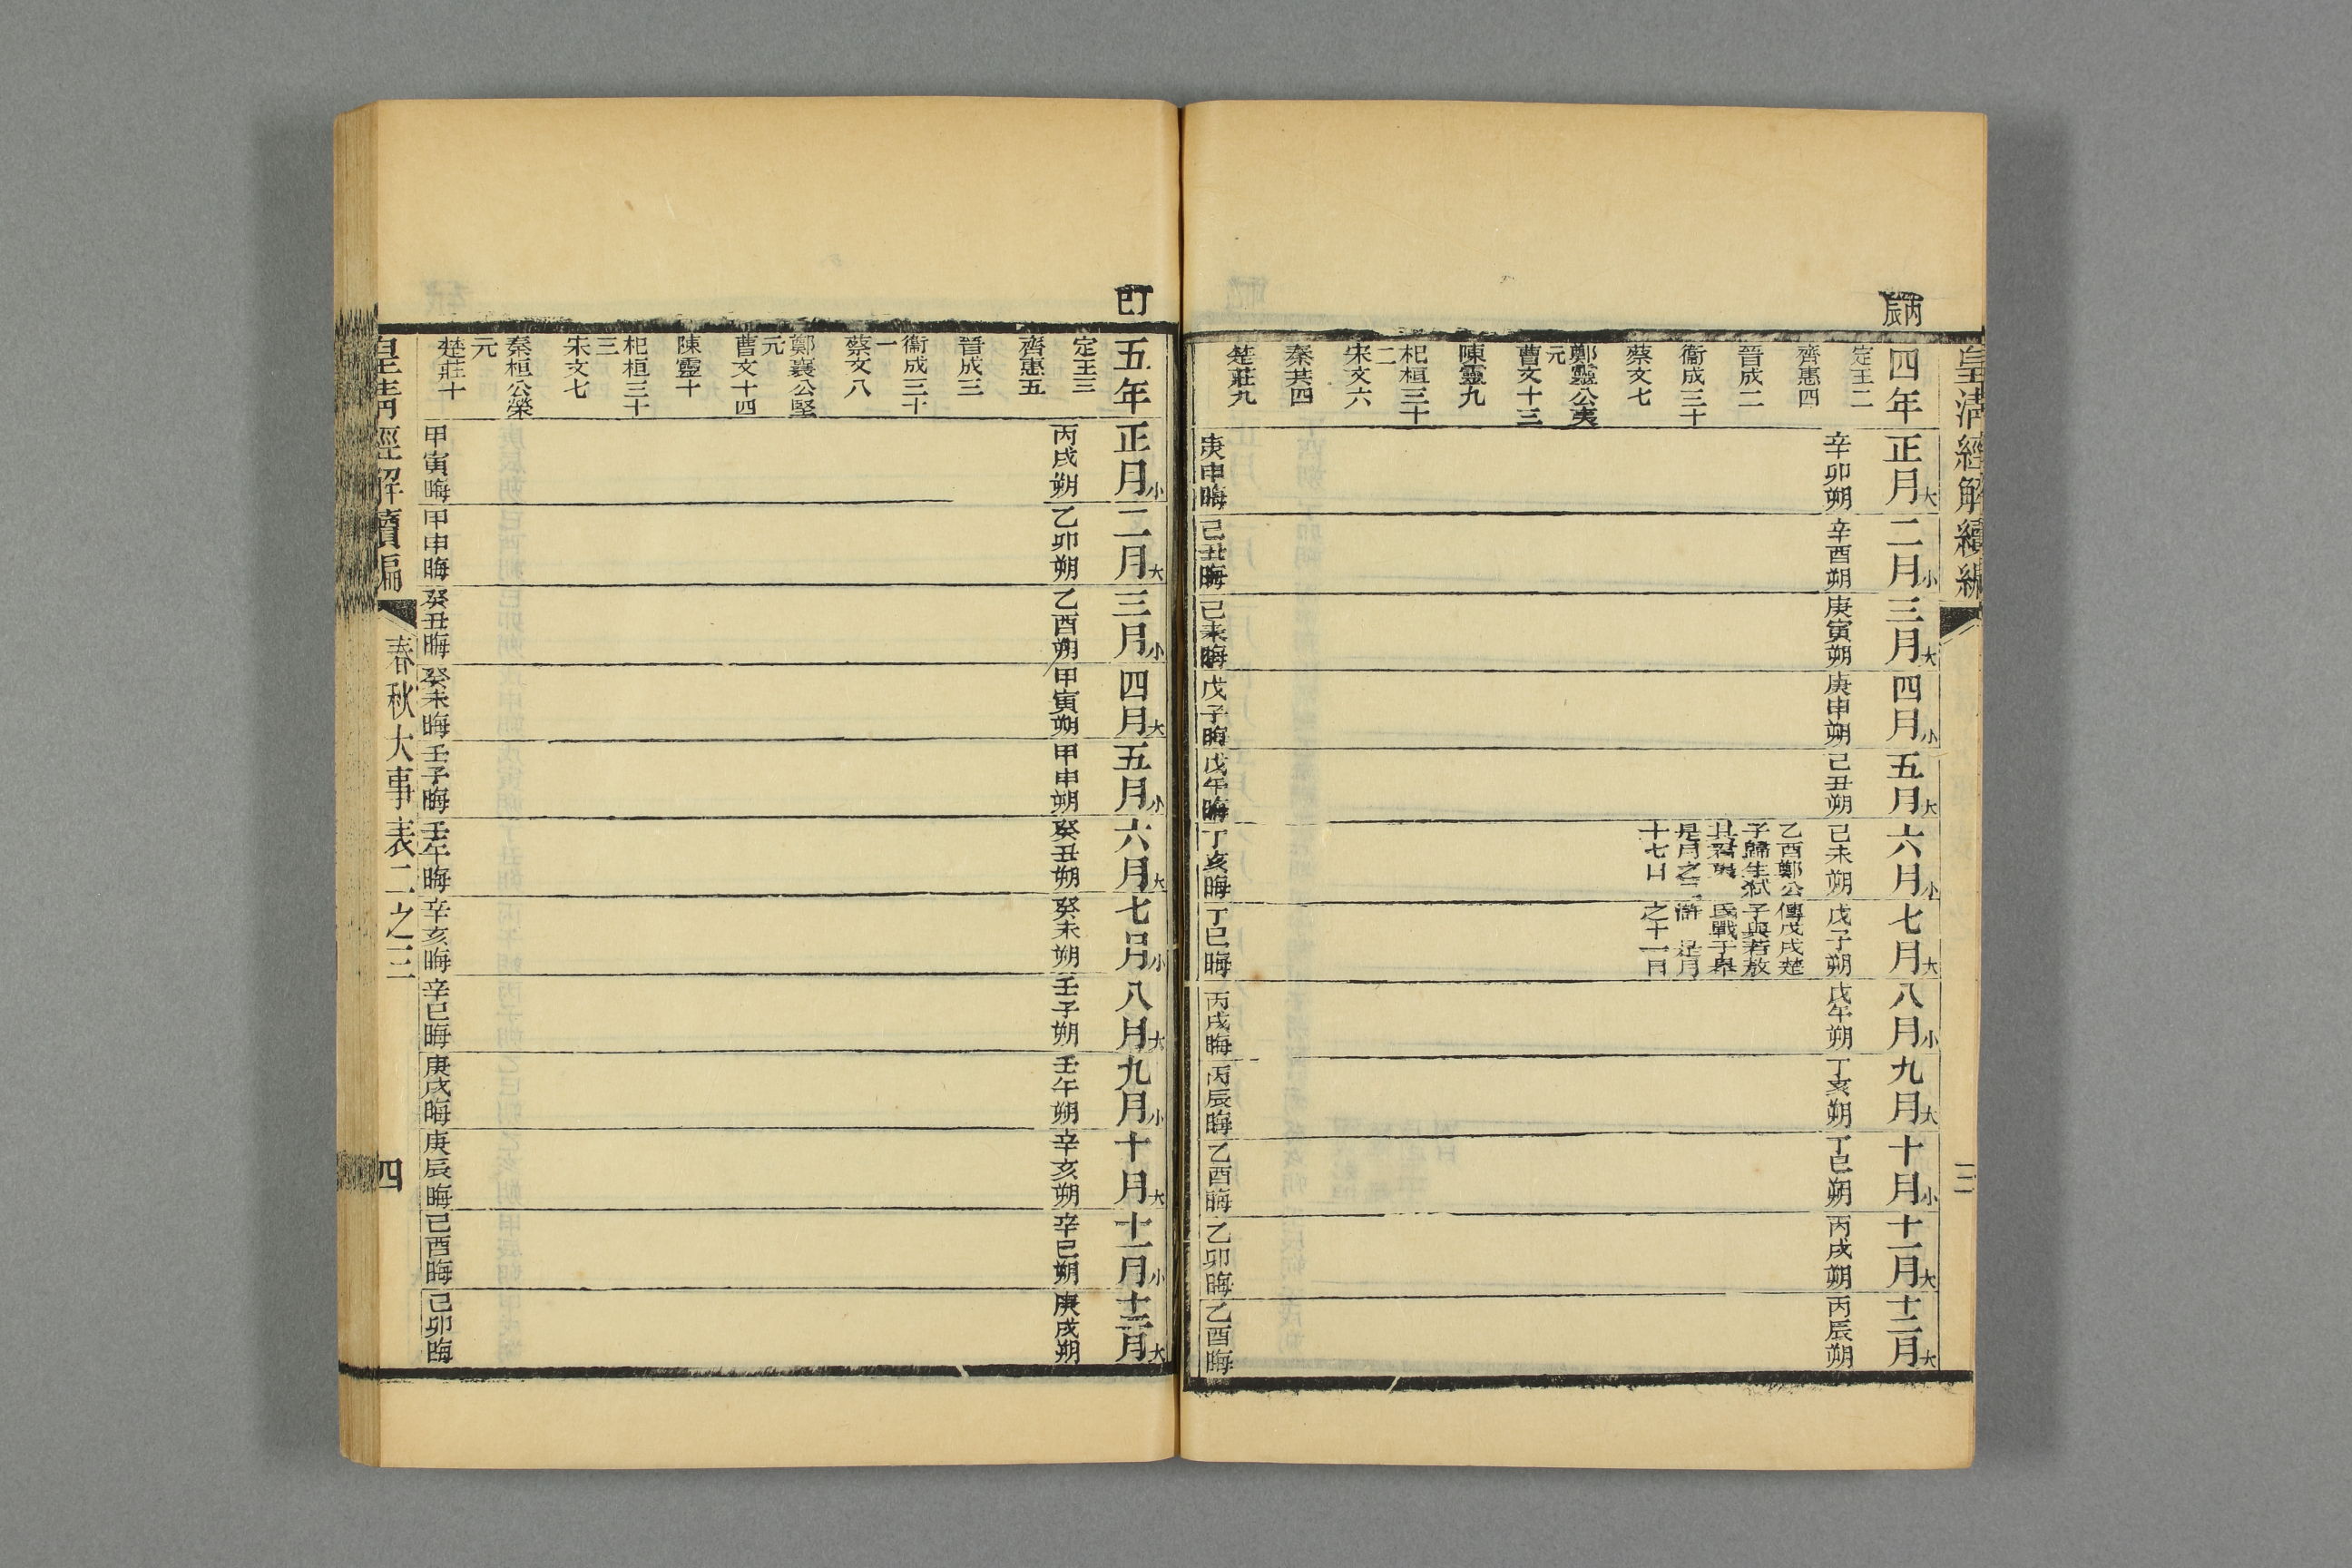 皇清經解續編
三
丙辰
四年
定王二
齊惠四
晉成二
衞成三十
蔡文七
鄭靈公夷
元
曹文十三
陳靈九
杞桓三十
二
宋文六
秦共四
楚莊九
正月大
辛卯朔
庚申晦
二月小
辛酉朔
己丑晦
三月大
庚寅朔
己未晦
四月小
庚申朔
戊子晦
五月大
己丑朔
戊午晦
六月小
己未朔
乙酉鄭公
子歸生弒
其君夷
是月之二
十七日
丁亥晦
七月大
戊子朔
傳戊戌楚
子與若敖
氏戰于皋
滸 是月
之十一日
丁巳晦
八月小
戊午朔
丙戌晦
九月大
丁亥朔
丙辰晦
十月小
丁巳朔
乙酉晦
十一月大
丙戌朔
乙卯晦
十二月大
丙辰朔
乙酉晦
丁巳
五年
定王三
齊惠五
晉成三
衞成三十
一
蔡文八
鄭襄公堅
元
曹文十四
陳靈十
杞桓三十
三
宋文七
秦桓公榮
元
楚莊十
正月小
丙戌朔
甲寅晦
二月大
乙卯朔
甲申晦
三月小
乙酉朔
癸丑晦
四月大
甲寅朔
癸未晦
五月小
甲申朔
壬子晦
六月大
癸丑朔
壬午晦
七月小
癸未朔
辛亥晦
八月大
壬子朔
辛巳晦
九月小
壬午朔
庚戌晦
十月大
辛亥朔
庚辰晦
十一月小
辛巳朔
己酉晦
十二月大
庚戌朔
己卯晦
皇清經解續編
春秋大事表二之三
四